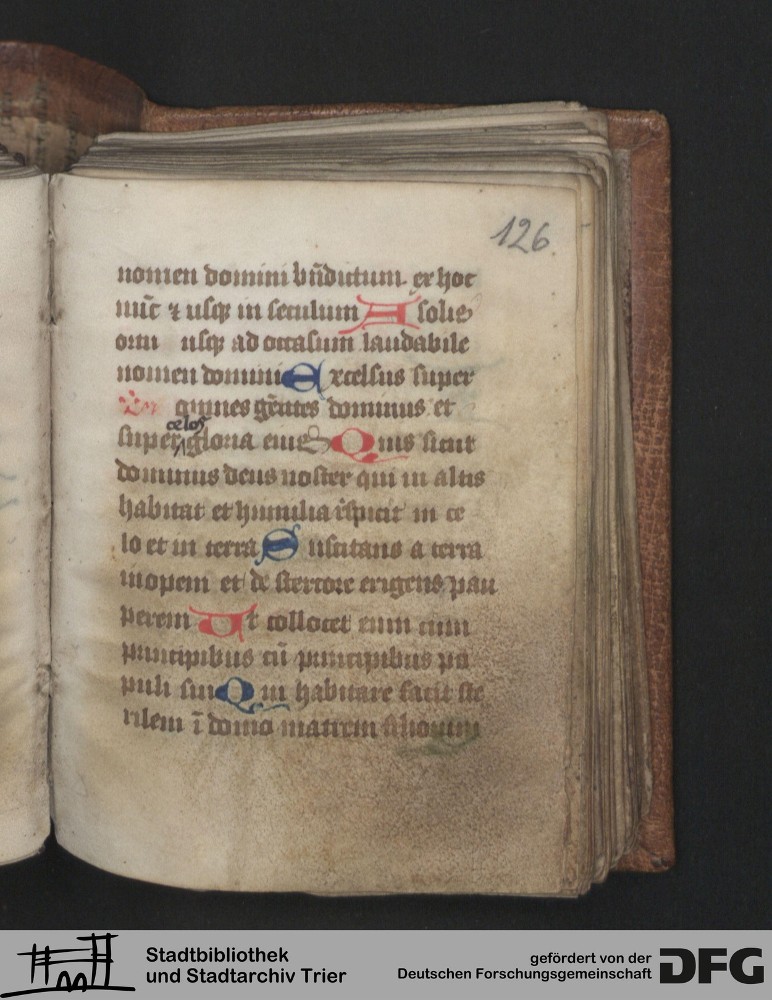 126
nomen domini bn̄dictum. ex hoc
nūc ⁊ usqꝫ in seculum A solis
ortu usqꝫ ad occasum laudabile
nomen domini Excelsus super
omnes gētes dominus et
celos
super gloria eius Quis sicut
dominus deus noster qui in altis
habitat et humilia r̄spicit in ce
lo et in terra Suscitans a terra
inopem et de stercore erigens pau
perem Ut collocet eum cum
principibus cū principibus po
puli sui Qui habitare facit ste
rilem ī domo matrem filiorum
Stadtbibliothek
und Stadtarchiv Trier
gefördert von der
Deutschen Forschungsgemeinschaft
DFG